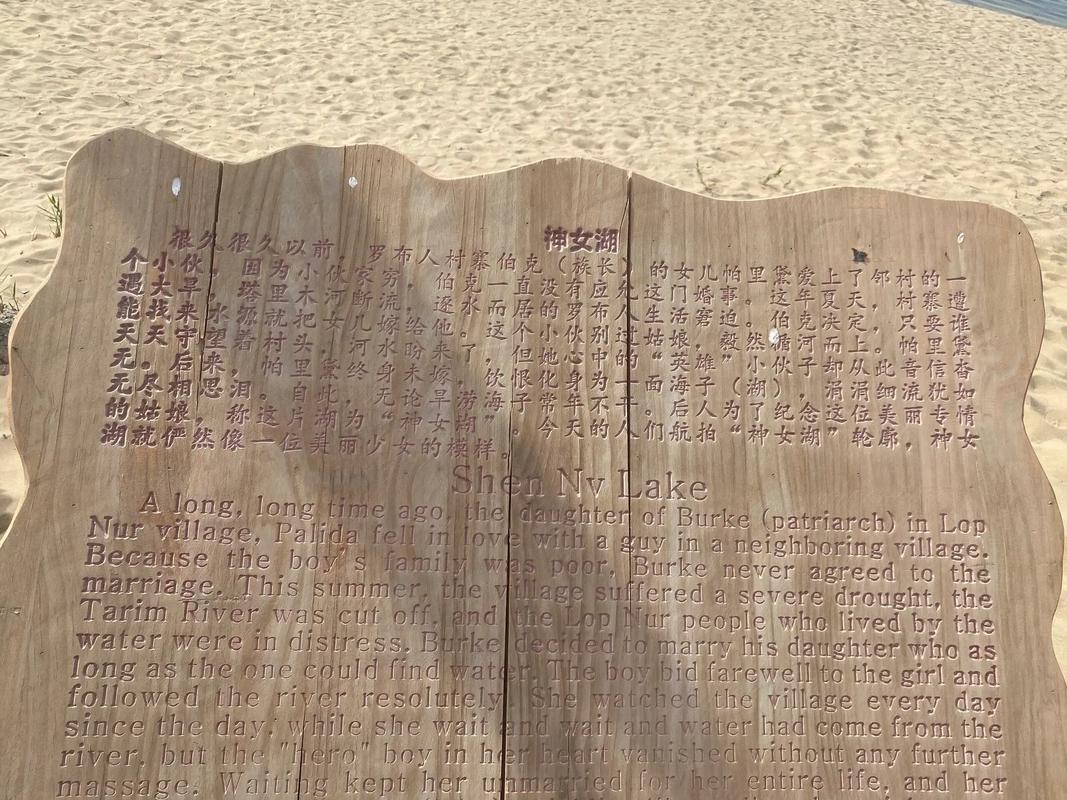 神女湖
很久很久以前，罗布人村寨伯克（族长）的女儿帕里黛爱上了邻村的一
个小伙。因为小伙家穷，伯克一直没有应允这门婚事。这年夏天，村寨遭
遇大旱，塔里木河断流，逐水而居的罗布人生活窘迫。伯克决定，只要谁
能找来水源就把女儿嫁给他。这个小伙别过姑娘，毅然循河而上。帕里黛
天天守望着村头，河水盼来了，但她心中的“英雄”小伙子却从此音信杳
无。后来，帕里黛终身未嫁，饮恨化为一面海子（湖），涓涓细流犹如
无尽相思泪。自此，无论旱涝，海子常年不干。后人为了纪念这位美丽专情
的姑娘，称这片湖为“神女湖”。今天的人们航拍“神女湖”轮廓，神女
湖就俨然像一位美丽少女的模样。
Shen Nv Lake
A long, long time ago, the daughter of Burke (patriarch) in Lop
Nur village, Palida fell in love with a guy in a neighboring village.
Because the boy's family was poor, Burke never agreed to the
marriage. This summer, the village suffered a severe drought, the
Tarim River was cut off, and the Lop Nur people who lived by the
water were in distress. Burke decided to marry his daughter who as
long as the one could find water. The boy bid farewell to the girl and
followed the river resolutely. She watched the village every day
since the day. while she wait and wait and water had come from the
river, but the "hero" boy in her heart vanished without any further
massage. Waiting kept her unmarried for her entire life, and her